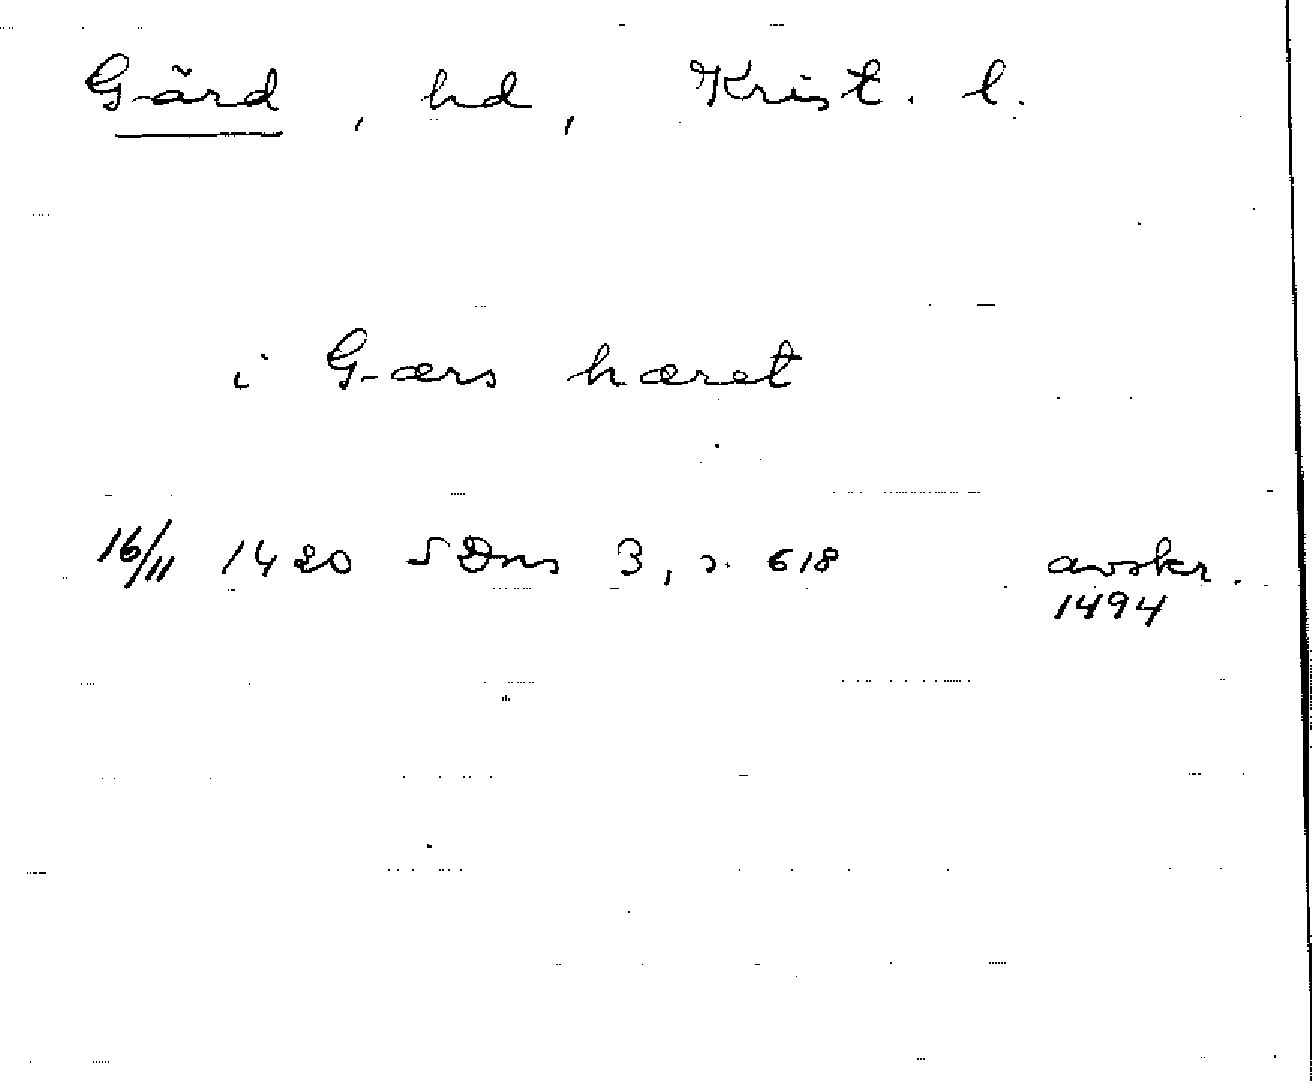 Gärd, hd, Krist. l.
i Gærs hæret
16/11 1420 SDns 3, s. 618 avskr.
1494